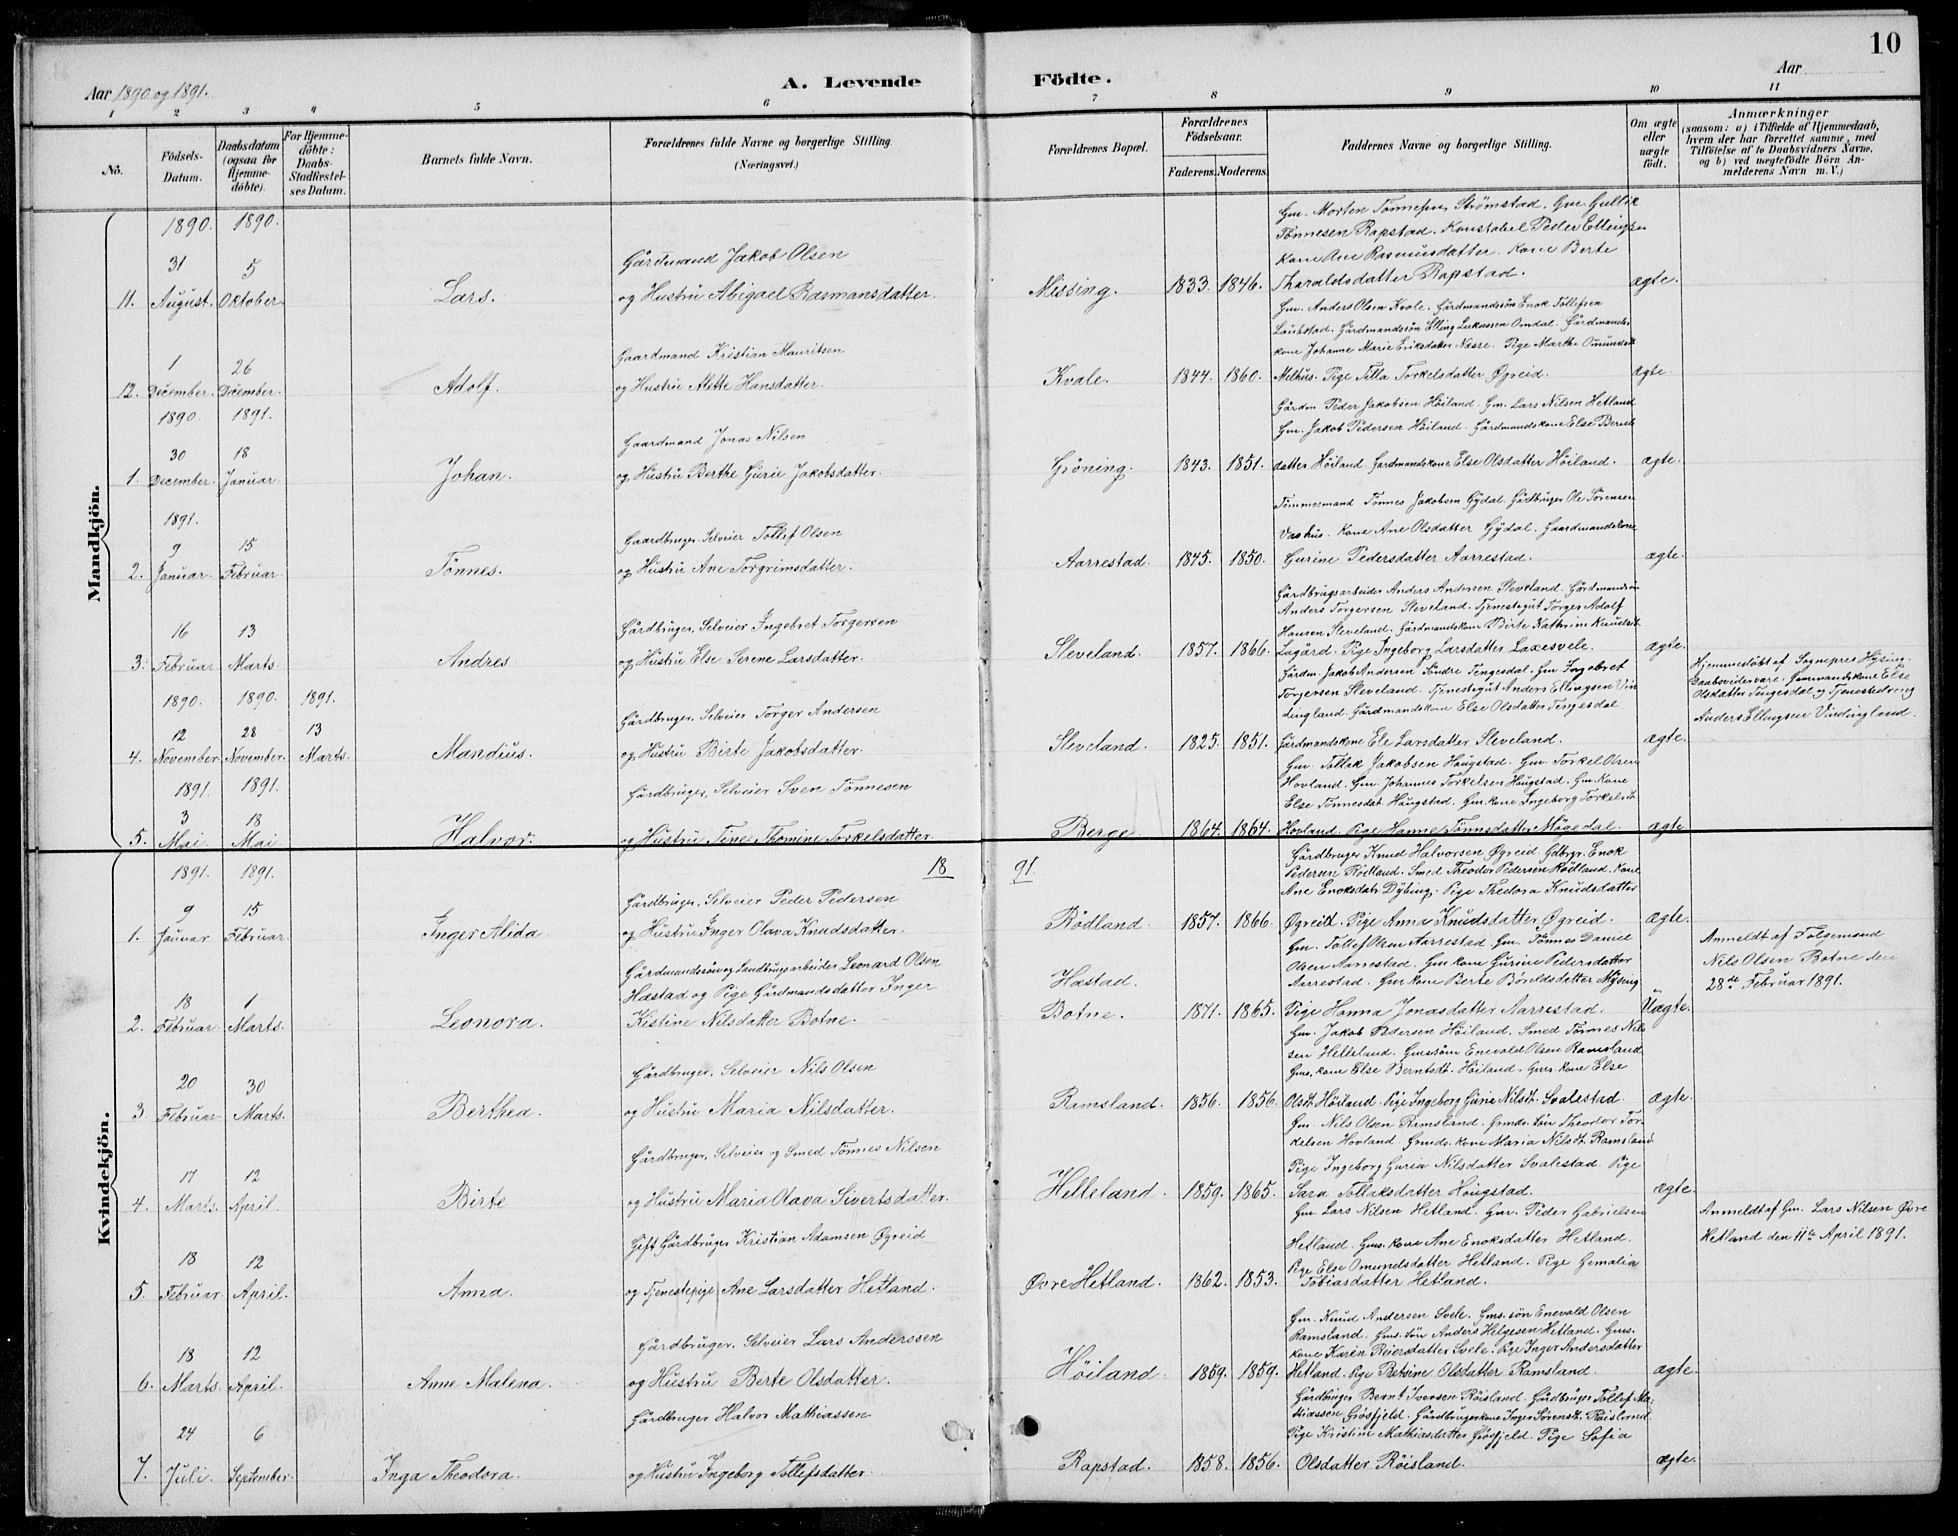 10
Aar 1890 og 1891.
A. Levende Födte.
Aar
1 2 3 4 5 6 7 8 9 10 11
Nö.
Födsels-Datum.
Daabsdatum (ogsaa for Hjemme-döbte).
For Hjemme-döbte: Daabs-Stadfæstel-ses Datum.
Barnets fulde Navn.
Forældrenes fulde Navne og borgerlige Stilling. (Næringsvei.)
Forældrenes Bopæl.
Forældrenes Födselsaar.
Faderens. Moderens.
Faddernes Navne og borgerlige Stilling.
Om ægte eller uægte født.
Anmærkninger
(saasom: a) i Tilfælde af Hjemmedaab, hvem der har forrettet samme, med Tilföielse af to Daabsvidners Navne, og b) ved uægtefödte Börn An-melderens Navn m. V.)
Mandkjön.
1890. 1890.
Gm. Morten Tønnesen Strømstad. Gm. Gullik
Tønnesen Rapstad. Konstabel Peder Ellingsen
Kone Ane Rasmusdatter. Kone Berte
31 5 Gårdmand Jakob Olsen
11. August. Oktober. Lars. og Hustru Abigael Rasmansdatter. Missing. 1833. 1846. Tharaldsdatter Rapstad. ægte.
Gm. Anders Olsen Kvale. Gårdmandssøn Enok Tollefsen
Laubstad. Gårdmandssön Elling Lukassen Omdal. Gårdmands
kone Johanne Marie Eriksdatter Næsre. Pige Marthe Omunds
1 26 Gaardmand Kristian Mauritsen
12. December. December. Adolf. og Hustru Alette Hansdatter. Kvale. 1844. 1860. Melhus. Pige Tilla Torkelsdatter Øgreid. ægte
1890. 1891.
Gårdm. Peder Jakobsen Höiland. Gm. Lars Nilsen Hetland
Gm. Jakob Pedersen Höiland. Gårdmandskone Else Bernts
30 18 Gaardmand Jonas Nilsen
1. December. Januar. Johan. og Hustru Berthe Gurie Jakobsdatter. Gröning. 1843. 1851. datter Höiland. Gardmandskone Else Olsdatter Höiland. ægte.
1891.
Tømmermand Tönnes Jakobsen Gydal. Gårdbruger Ole Sørensen
Vashus. Kone Ane Olsdatter Gydal. Gaardmandskone
9 15 Gaardbruger Selveier Tollef Olsen
2. Januar. Februar. Tönnes. og Hustru Ane Torgrimsdatter. Aarrestad. 1845. 1850. Gurine Pedersdatter Aarrestad. ægte.
Gårdbrugsarbeider Anders Andersen Sleveland. Gårdmandssön
Anders Torgersen Sleveland. Tjenestegut Torger Adolf
Hansen Sleveland. Gårdmandskone Birte Kathrin Knudsdt
16 13 Gårdbruger, Selveier Ingebret Torgersen
3. Februar. Marts. Andres og Hustru Else Serene Larsdatter. Sleveland. 1857. 1866. Lagård. Pige Ingeborg Larsdatter Laxesvele. ægte.
Gårdm. Jakob Andersen Söndre Tengesdal. Gm. Ingebret
Torgersen Sleveland. Tjenestegut Anders Ellingsen Vin
dingland. Gårdmandskone Else Olsdatter Tengesdal
Hjemmedöbt af Sognepres Hysing.
Daabsvidner vare: Gårmandskone Else
Olsdatter Tengesdal og Tjenestedreng
Anders Ellingsen Vindingland.
1890. 1890. 1891.
12 28 13 Gårdbruger, Selveier Torger Andersen
4. November. November. Marts. Mandius. og Hustru Birte Jakobsdatter. Sleveland. 1825. 1851. Gårdmandskone Ele Larsdatter Sleveland. ægte.
1891. 1891.
Gm. Tollak Jakobsen Haugstad. Gm. Torkel Olsen
Hovland. Gm. Johannes Torkelsen Haugstad. Gm. Kone
Else Tönnesdat. Haugstad. Gm. kone Ingeborg Torkelsdt.
3 18 Gårdbruger, Selveier Sven Tönnesen
5. Mai Mai Halvor. og Hustru Tine Thomine Torkelsdatter. Berge 1864. 1864. Hovland. Pige Hanne Tönnesdatter Mögedal. ægte
Kvindekjön.
1891. 1891. 18 91.
Gårdbruger Knud Halvorsen Øgreid. Gdbrgr. Enok
Pedersen Rödland. Smed Theodor Pedersen Rödland. Kone
Ane Enoksdatr. Dybing. Pige Thedora Knudsdatter
9 15 Gårdbruger, Selveier Peder Pedersen
1. Januar Februar. Inger Alida. og Hustru Inger Olava Knudsdatter. Rödland. 1857. 1866. Øgreid. Pige Anna Knudsdatter Øgreid. ægte.
Gm. Tollef Olsen Aarrestad. Gm. Tönnes Daniel
Olsen Aarrestad. Gm. kone Gurine Pedersdatter
Aarrestad. Gm. kone Berte Böreldsdatter Mysing
Gårdmandssön og Landbrugsarbeider Leonard Olsen
Hæstad og Pige Gårdmandsdatter Inger Hæstad.
18 1
2. Februar. Marts. Leonora. Kistine Nilsdatter Botne. Botne. 1871. 1865. Pige Hanna Jonasdatter Aarrestad. Uægte.
Anmeldt af Folgemand
Nils Olsen Botne den
28de Februar 1891.
Gm. Jakob Pedersen Höiland. Smed Tönnes Nil
sen Helleland. Gmssön Enevald Olsen Ramsland.
Gms. kone Else Berntsdt. Höiland. Gms. kone Else
20 30 Gårdbruger, Selveier Nils Olsen
3. Februar. Marts. Berthea. og Hustru Maria Nilsdatter. Ramsland. 1856. 1856. Olsdt. Höiland. Pige Ingeborg Gurie Nilsdt. Svalestad. ægte.
Gm. Nils Olsen Ramsland. Gmds. Sön Theodor Tor
kelsen Hovland. Gmds. kone Maria Nilsdt. Ramsland
Pige Ingeborg Guria Nilsdatter Svalestad. Pige
17 12 Gårdbruger, Selveier og Smed Tönnes Nilsen
4. Marts. April. Birte og Hustru Maria Olava Sivertsdatter. Helleland. 1859. 1865. Sara Tollaksdatter Hougstad. ægte.
Gm. Lars Nilsen Hetland. Gm. Peder Gabrielsen
Hetland. Gms. kone Ane Enoksdatter Hetland.
Pige Else Omundsdatter Hetland. Pige Gemalia
Anmeldt af Gm. Lars Nilsen Øvre
Hetland den 11te April 1891.
18 12 Gift Gårdbruger Kristian Adamsen Øgreid
5. Februar. April. Anna. og Tjenestepige Ane Larsdatter Hetland. Øvre Hetland. 1862. 1853. Tobiasdatter Hetland.
Gm. Knud Andersen Svele. Gms. sön Enevald Olsen
Ramsland. Gms. Sön Anders Helgesen Hetland. Gms.
kone Karen Reiersdatter Svele. Pige Inger Andersdatter
18 12 Gårdbruger, Selveier Lars Anderssen
6. Marts. April. Anne Malena. og Hustru Berte Olsdatter. Höiland. 1859. 1859. Hetland. Pige Betsine Olsdatter Ramsland. ægte.
Gårdbruger Bernt Iversen Röisland. Gårdbruger Tollef Ma-
thiassen Grösfjeld. Gårdbrugerkone Inger Sörensdt. Röisland
Pige Kristine Mathiasdatter Grösfjeld. Pige Sofia
24 6 Gårdbruger Halvor Mathiassen
7. Juli. September. Inga Theodora. og Hustru Ingeborg Tollefsdatter. Rapstad. 1858. 1856. Olsdatter Röisland. ægte.